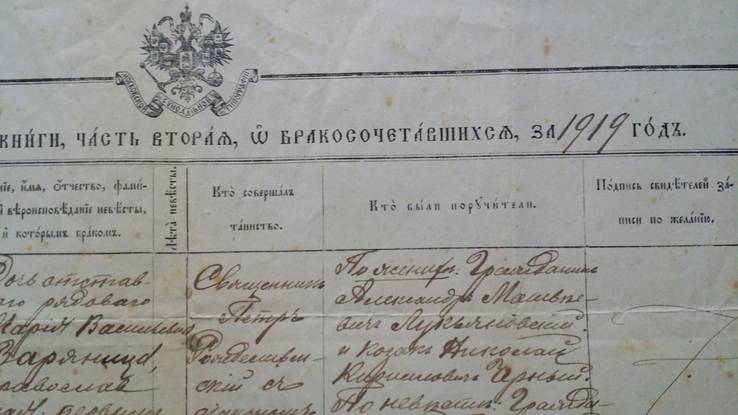 КНИ́ГИ, ЧА́СТЬ ВТОРА́Ѧ, Ѡ БРАКОСОЧЕТА́ВШИХСѦ, ЗА 1919 ГО́ДЪ.
и́мѧ, ѻ́тчество, фами́-
вѣроисповѣ́данїе невѣ́сты,
и҆ кото́рымъ бра́комъ.
Лѣ́та невѣ́сты.
Кто̀ соверша́лъ
та́инство.
Кто̀ бы́ли порꙋчи́тели.
По́дпись свидѣ́телей за́-
писи по жела́нїю.
Дочь отстав-
наго рядоваго
Марія Васильевна
православ
первымъ
Священникъ
Петръ
Рождествен-
скій съ
По жениху: Гражданинъ
Александръ Матвѣе-
вичъ Лукьяновскій
и козакъ Николай
Кирилловичъ Чарный.
По невѣстѣ: Гражда-